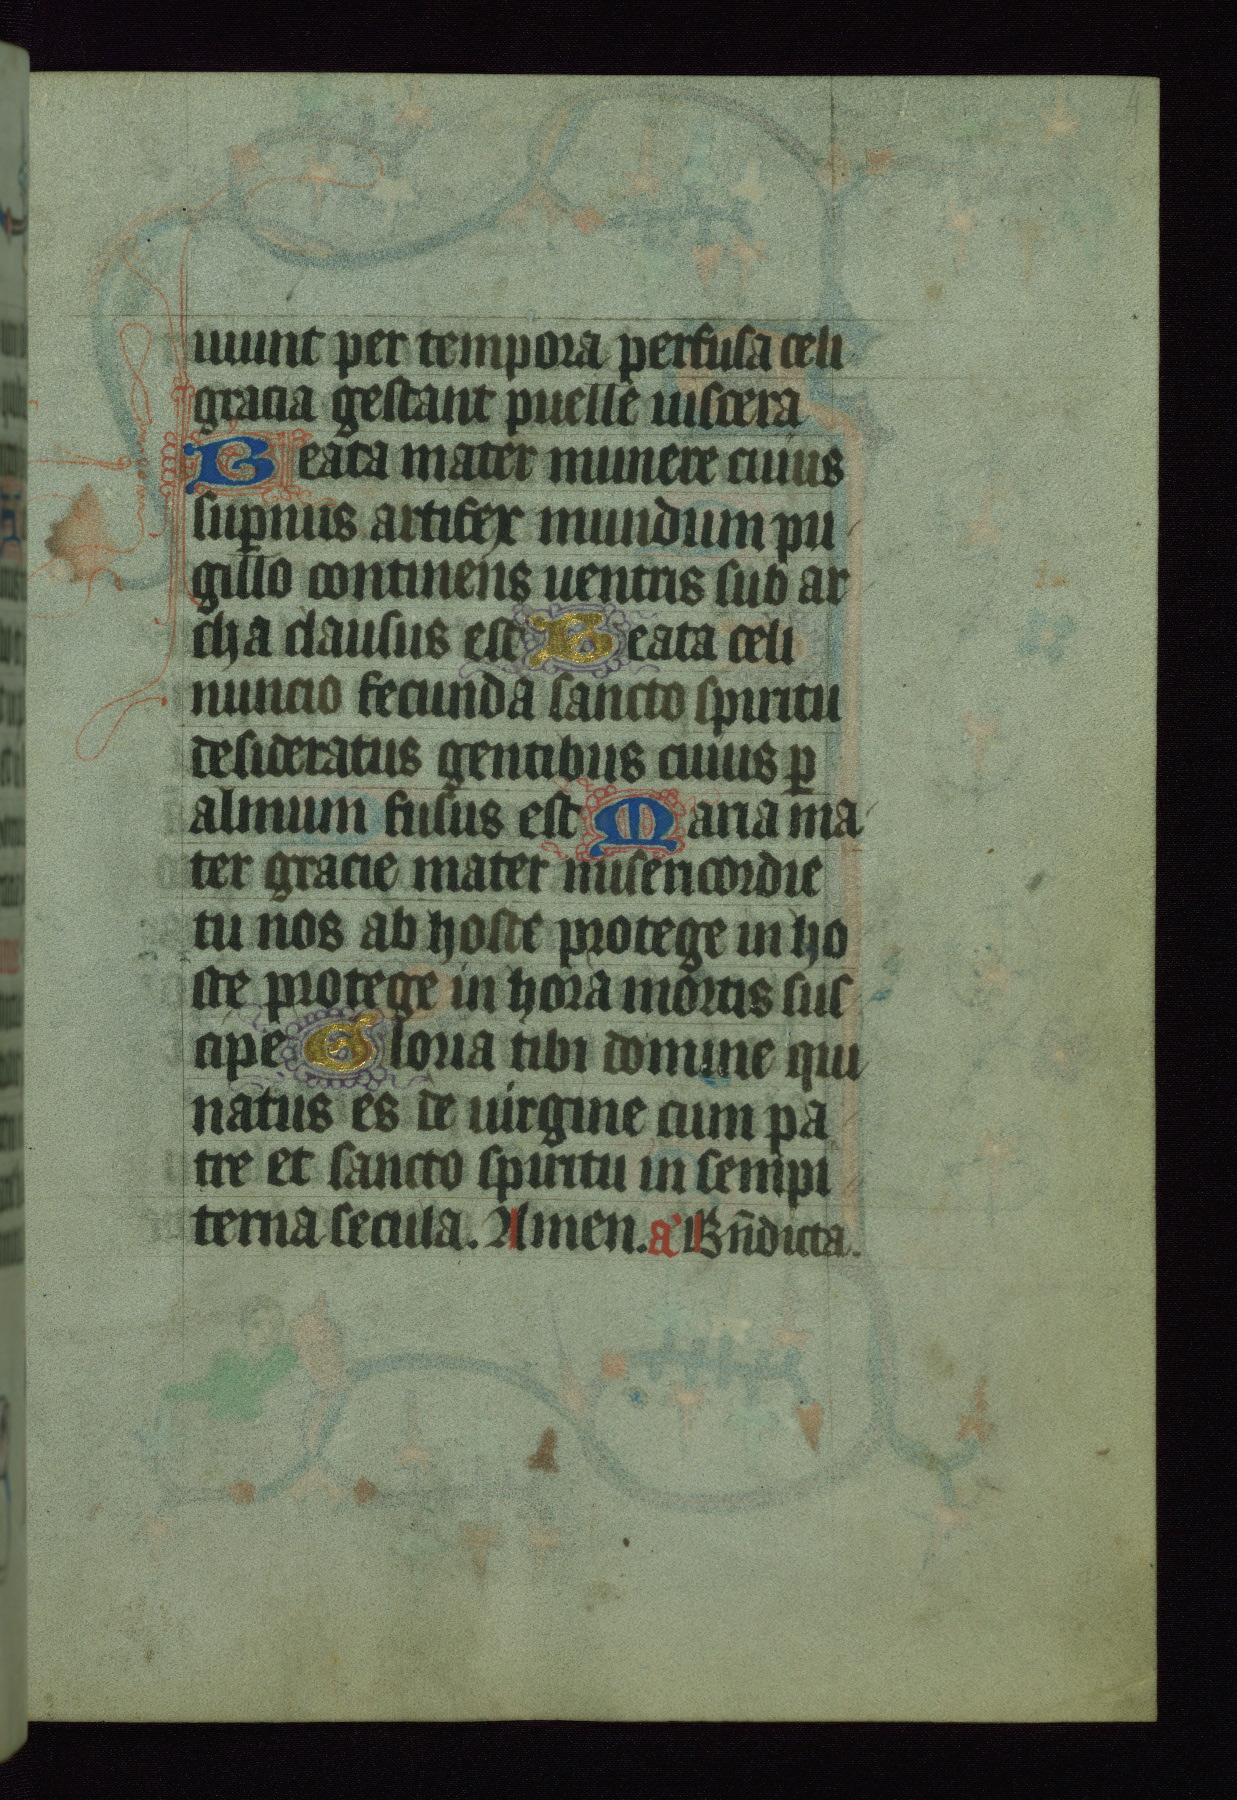 uiunt per tempora perfusa celi
gracia gestant puelle uiscera
Beata mater munere cuius
sup̲nus artifex mundum pu
gillo continens uentris sub ar
cha clausus est Beata celi
nuncio fecunda sancto spiritu
desideratus gentibus cuius p̲
aluum fusus est Maria ma
ter gracie mater misericordie
tu nos ab hoste protege in ho
ste protege in hora mortis sus
cipe Gloria tibi domine qui
natus es de uirgine cum pa
tre et sancto spiritu in sempi
terna secula. Amen. a' Bn̄dicta.